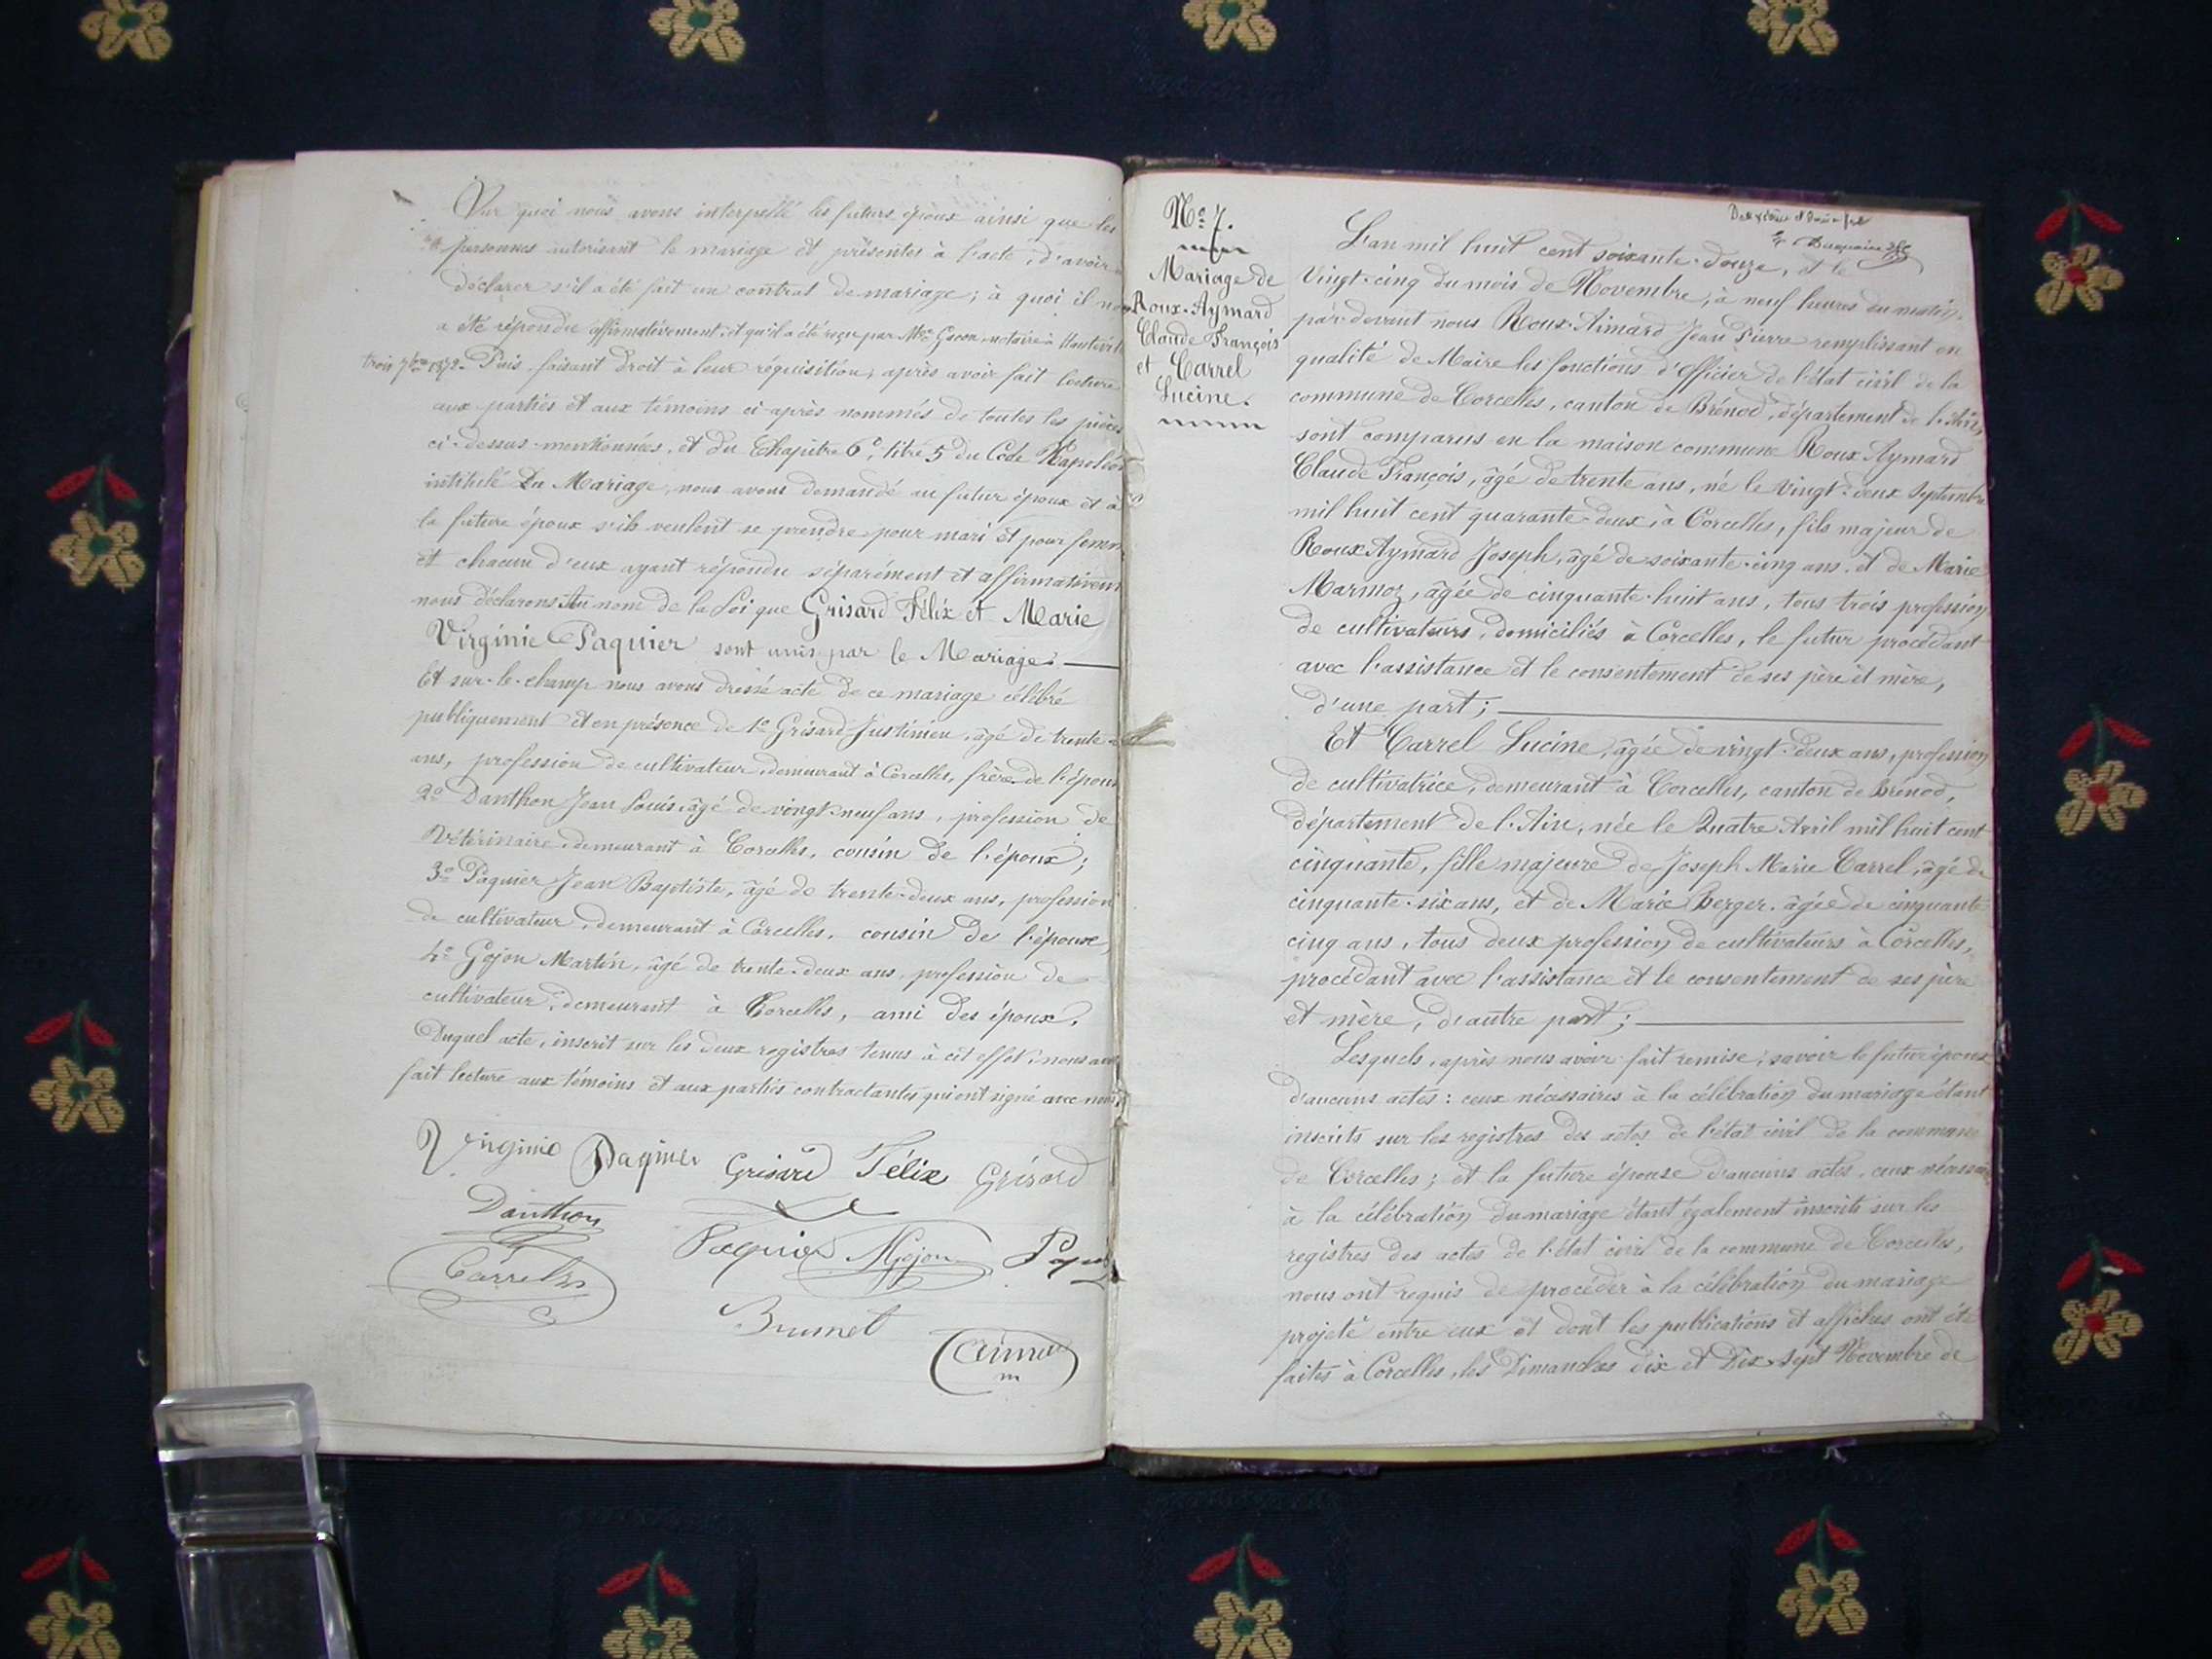 Sur quoi nous avons interpellé les futurs époux ainsi que les
personnes autorisant le mariage et présentes à l'acte, d'avoir à
déclarer s'il a été fait un contrat de mariage; à quoi il nous
a été répondu affirmativement et qu'il a été reçu par Me Gacon, notaire à Hauteville
trois 7bre 1872. Puis faisant droit à leur réquisition, après avoir fait lecture
aux parties et aux témoins ci-après nommés de toutes les pièces
ci-dessus mentionnées, et du Chapitre 6e, titre 5 du Code Napoléon
intitulé Du Mariage, nous avons demandé au futur époux et à
la future époux s'ils veulent se prendre pour mari et pour femme
et chacun d'eux ayant répondu séparément et affirmativement
nous déclarons Au nom de la Loi que Grisard Félix et Marie
Virginie Paquier sont unis par le Mariage.
Et sur-le-champ nous avons dressé acte de ce mariage célébré
publiquement et en présence de 1e Grisard Justinien, âgé de trente
ans, profession de cultivateur, demeurant à Corcelles, frère de l'époux
2e Danthon Jean Louis, âgé de vingt-neuf ans, profession de
Vétérinaire, demeurant à Corcelles, cousin de l'époux;
3e Paquier Jean Baptiste, âgé de trente-deux ans, profession
de cultivateur, demeurant à Corcelles, cousin de l'épouse,
4e Gojon Martin, âgé de trente-deux ans, profession de
cultivateur, demeurant à Corcelles, ami des époux.
Duquel acte, inscrit sur les deux registres tenus à cet effet, nous avons
fait lecture aux témoins et aux parties contractantes qui ont signé avec nous
Virginie Paquier Grisard Félix Grisard
Danthon
Paquier MGojon
Carrel
Brunet
No 7.
Mariage de
Roux-Aymard
Claude François
et Carrel
Lucine.
L'an mil huit cent soixante-douze, et le
Vingt-cinq du mois de Novembre, à neuf heures du matin,
par-devant nous Roux-Aimard Jean Pierre remplissant en
qualité de Maire les fonctions d'Officier de l'état civil de la
commune de Corcelles, canton de Brénod, département de l'Ain,
sont comparus en la maison commune Roux Aymard
Claude François, âgé de trente ans, né le Vingt-deux Septembre
mil huit cent quarante-deux, à Corcelles, fils majeur de
Roux Aymard Joseph, âgé de soixante-cinq ans et de Marie
Marmoz, âgée de cinquante-huit ans, tous trois profession
de cultivateurs, domiciliés à Corcelles, le futur procédant
avec l'assistance et le consentement de ses père et mère,
d'une part;
Et Carrel Lucine, âgée de vingt-deux ans, profession
de cultivatrice, demeurant à Corcelles, canton de Brénod,
département de l'Ain, née le Quatre Avril mil huit cent
cinquante, fille majeure de Joseph Marie Carrel, âgé de
cinquante-six ans, et de Marie Berger, âgée de cinquante
cinq ans, tous deux profession de cultivateurs à Corcelles,
procédant avec l'assistance et le consentement de ses père
et mère, d'autre part;
Lesquels, après nous avoir fait remise, savoir le futur époux
d'aucuns actes: ceux nécessaires à la célébration du mariage étant
inscrits sur les registres des actes de l'état civil de la commune
de Corcelles; et la future épouse d'aucuns actes, ceux nécessaires
à la célébration du mariage étant également inscrits sur les
registres des actes de l'état civil de la commune de Corcelles,
nous ont requis de procéder à la célébration du mariage
projeté entre eux et dont les publications et affiches ont été
faites à Corcelles, les Dimanches dix et Dix-sept Novembre de